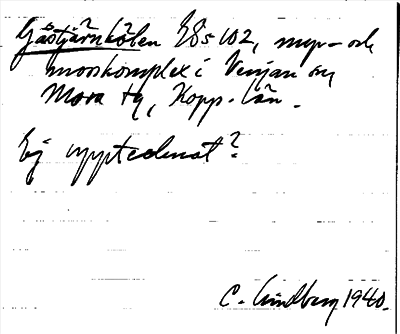 Gåstjärnkölen E85 102, myr- och
mosskomplex i Venjan sn
Mora tg, Kopp. län.
Ej upptecknat?
C. Lindberg 1940.